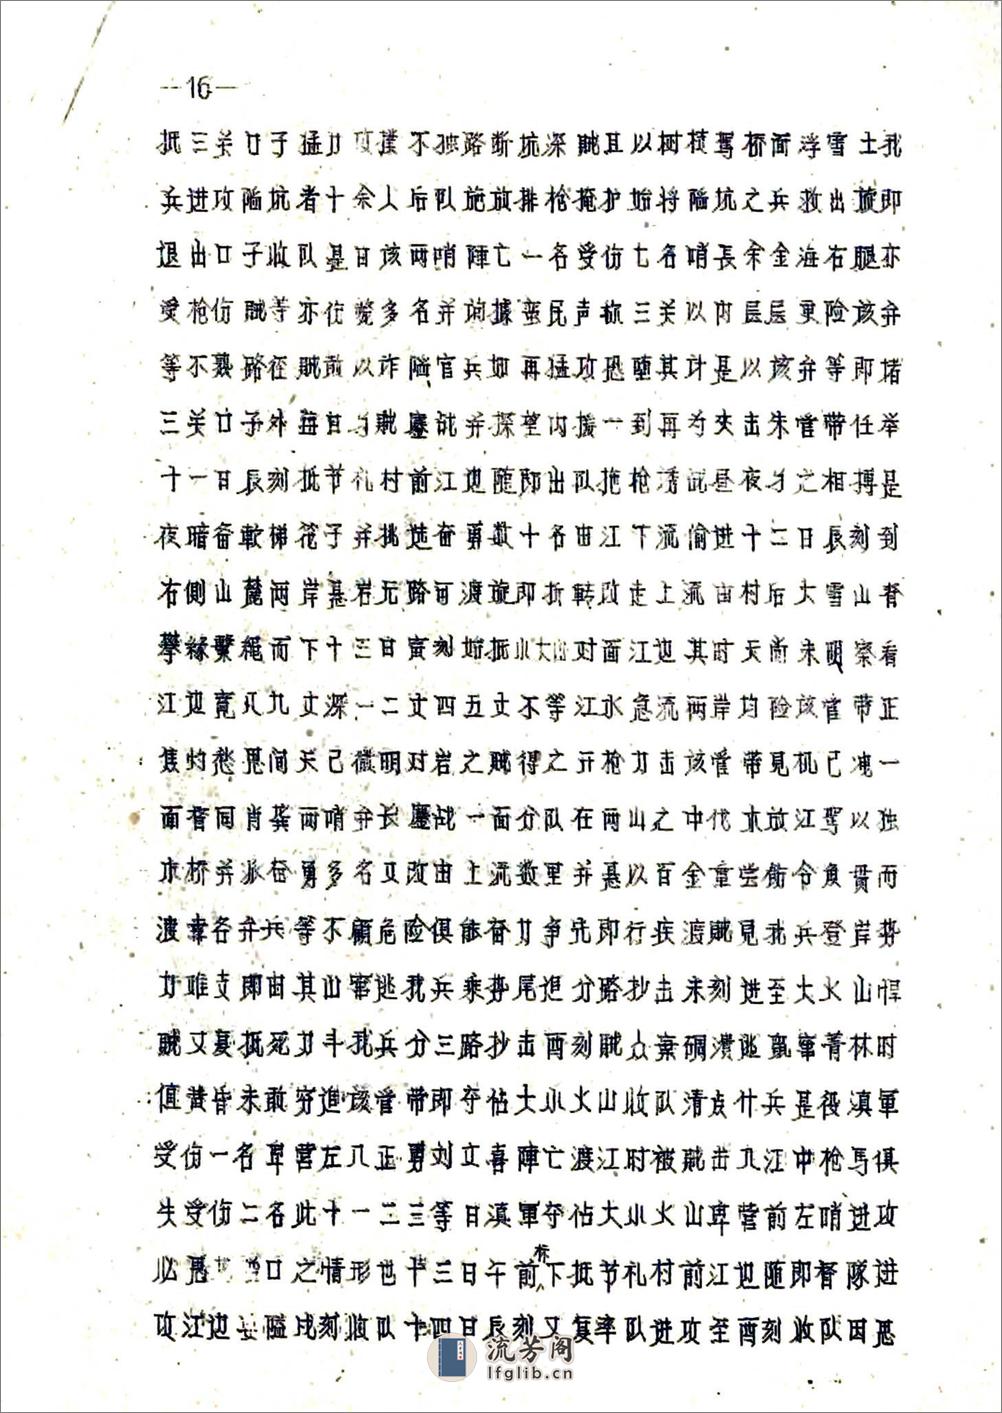 —16—
抵三关口子猛力攻扑不独路断坑深贼且以树横驾桥面浮雪土我
兵进攻陷坑者十余人后队施放排枪掩护始将陷坑之兵救出旋即
退出口子收队是日该两哨陣亡一名受伤七名哨長余金海右腿亦
受枪伤贼等亦伤毙多名并询據蛮民声称三关以内层层更险该弁
等不熟路径贼敢以诈陷官兵如再猛攻恐堕其计是以该弁等即堵
三关口子外每日与贼鏖战并探望内援一到再为夹击朱管带任举
十一日辰刻抵节礼村前江边随即出队拖枪诱战昼夜与之相搏是
夜暗备軟梯笼子并挑选奋勇数十名由江下流偷进十二日辰刻到
右側山麓两岸悬岩无路可渡旋即折转改走上流由村后大雪山脊
攀緣繫绳而下十三日寅刻始抵小火山对面江边其时天尚未明察看
江边宽八九丈深一二丈四五丈不等江水急流两岸均险该管带正
焦灼愁思间天已微明对岩之贼得之开枪力击该管带見机已洩一
面督同肖龚两哨弁长鏖战一面分队在两山之中伐木放江驾以独
木桥并派奋勇多名又改由上流数里并悬以百金重尝飭令魚贯而
渡幸各弁兵等不顧危险俱能奋力争先即行疾渡贼見我兵登岸势
力难支即由其山窜逃我兵乘势尾追分路抄击未刻进至大火山悍
贼又复抵死力斗我兵分三路抄击酉刻贼众棄碉溃逃亂窜菁林时
值黄昏未敢穷追该管带即夺佔大小火山收队清点什兵是役滇軍
受伤一名卑营左八正勇刘立喜陣亡渡江时被贼击入江中枪马俱
失受伤二名此十一二三等日滇軍夺佔大小火山卑营前左哨进攻
必悪 口之情形也十三日午前标下抵节礼村前江边随即督隊进
攻江边 隘戌刻收队十四日辰刻又复率队进攻至酉刻收队因悪
流芳阁
lfglib.cn